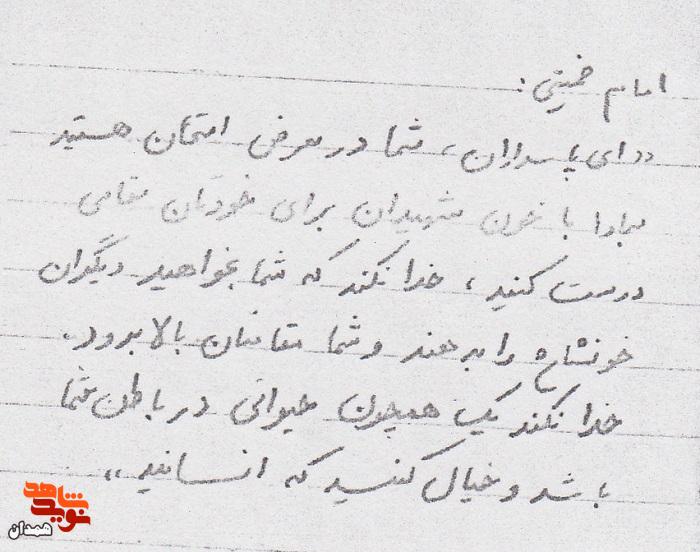 امام خمینی:
«ای پاسداران، شما در معرض امتحان هستید
مبادا با خون شهیدان برای خودتان مقامی
درست کنید، خدا نکند که شما بخواهید دیگران
خونشان را بدهند و شما مقامتان بالا برود.
خدا نکند یک همچون حیوانی در باطن شما
باشد و خیال کنید که انسانید»
نوید شاهد
همدان